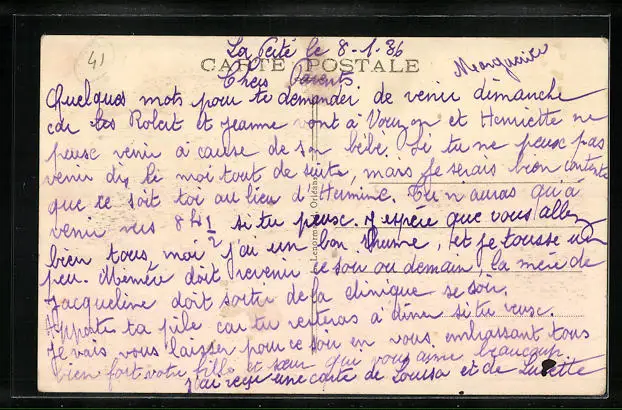 41
La Ferté le 8-1-36
CARTE POSTALE
Chers Parents
Marguerite
Quelques mots pour te demander de venir dimanche
car les Robert et Jeanne vont à Vouzon et Henriette ne
peusc venir à cause de son bébé. Si tu ne peusc pas
venir dis le moi tout de suite, mais je serais bien contente
que ce soit toi au lieu d'Hermine. Tu n'auras qu'à
venir vers 8H 1/2 si tu peusc. J'espère que vous allez
bien tous, moi j'ai un bon rhume, et je tousse un
peu. Mémère doit revenir ce soir ou demain, la mère de
Jacqueline doit sortir de la clinique se soir.
Apporte ta pile car tu resteras à diner si tu veusc.
Je vais vous laisser pour ce soir en vous embrassant tous
bien fort votre fille et sœur qui vous aime beaucoup.
J'ai reçu une carte de Louisa et de Lucette
Orléans